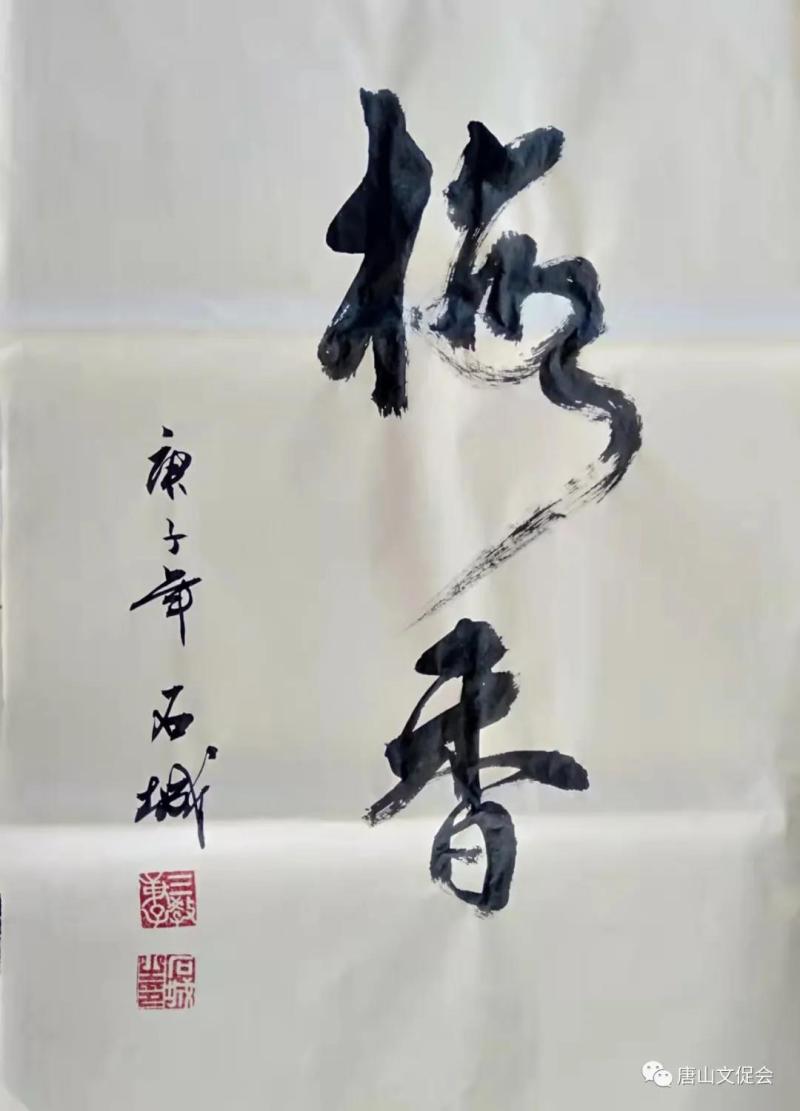 梅香
庚子年 石城
石城之印
唐山文促会